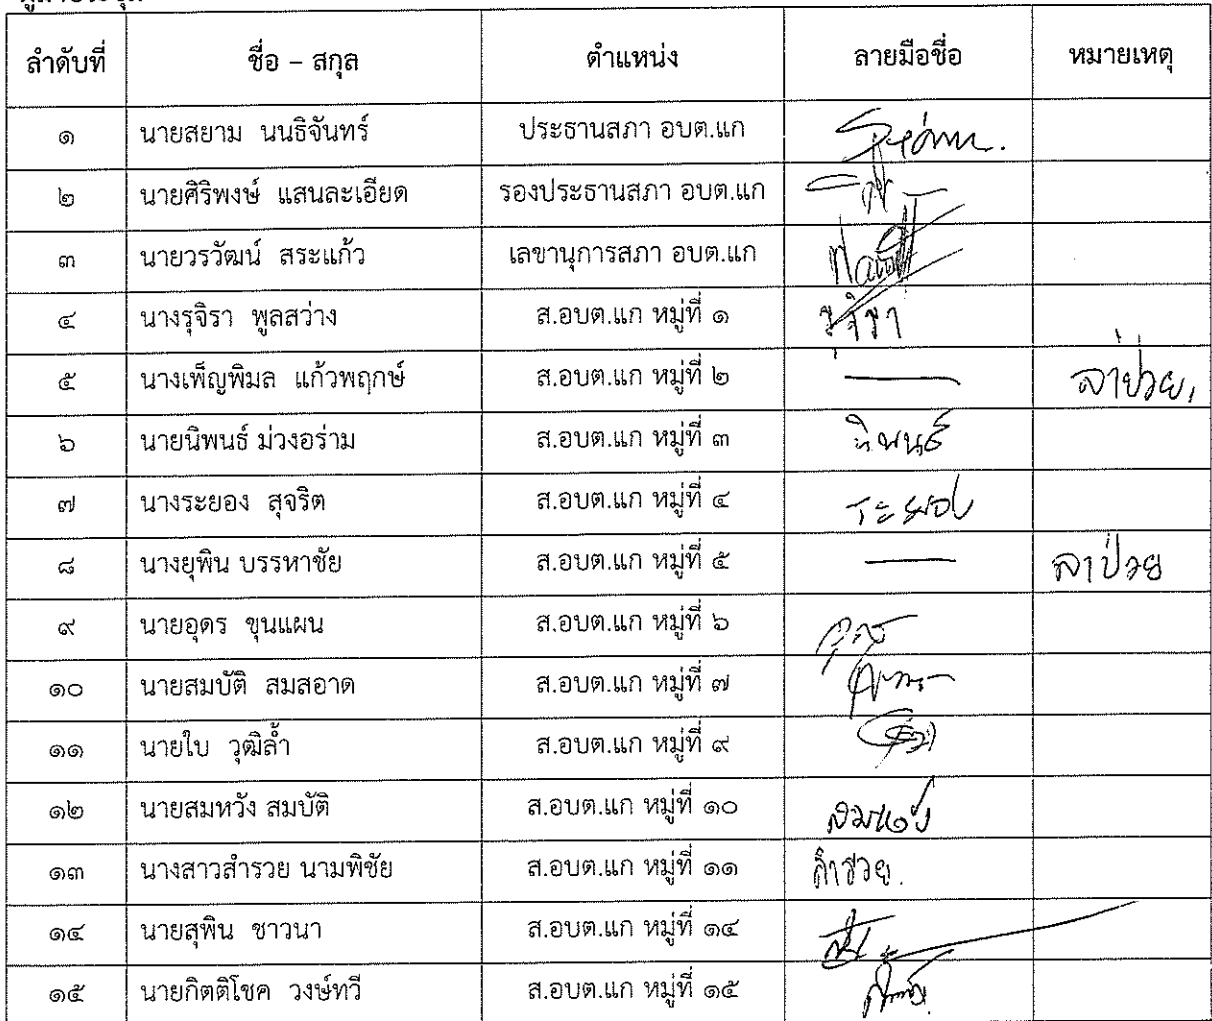 ลำดับที่ ชื่อ – สกุล ตำแหน่ง ลายมือชื่อ หมายเหตุ
๑ นายสยาม นนธิจันทร์ ประธานสภา อบต.แก
๒ นายศิริพงษ์ แสนละเอียด รองประธานสภา อบต.แก
๓ นายวรวัฒน์ สระแก้ว เลขานุการสภา อบต.แก
๔ นางรุจิรา พูลสว่าง ส.อบต.แก หมู่ที่ ๑ รุจิรา
๕ นางเพ็ญพิมล แก้วพฤกษ์ ส.อบต.แก หมู่ที่ ๒ — ลาป่วย,
๖ นายนิพนธ์ ม่วงอร่าม ส.อบต.แก หมู่ที่ ๓ นิพนธ์
๗ นางระยอง สุจริต ส.อบต.แก หมู่ที่ ๔ ระยอง
๘ นางยุพิน บรรหาชัย ส.อบต.แก หมู่ที่ ๕ — ลาป่วย
๙ นายอุดร ขุนแผน ส.อบต.แก หมู่ที่ ๖
๑๐ นายสมบัติ สมสอาด ส.อบต.แก หมู่ที่ ๗
๑๑ นายใบ วุฒิล้ำ ส.อบต.แก หมู่ที่ ๙
๑๒ นายสมหวัง สมบัติ ส.อบต.แก หมู่ที่ ๑๐ สมหวัง
๑๓ นางสาวสำรวย นามพิชัย ส.อบต.แก หมู่ที่ ๑๑ สำรวย.
๑๔ นายสุพิน ชาวนา ส.อบต.แก หมู่ที่ ๑๔
๑๕ นายกิตติโชค วงษ์ทวี ส.อบต.แก หมู่ที่ ๑๕